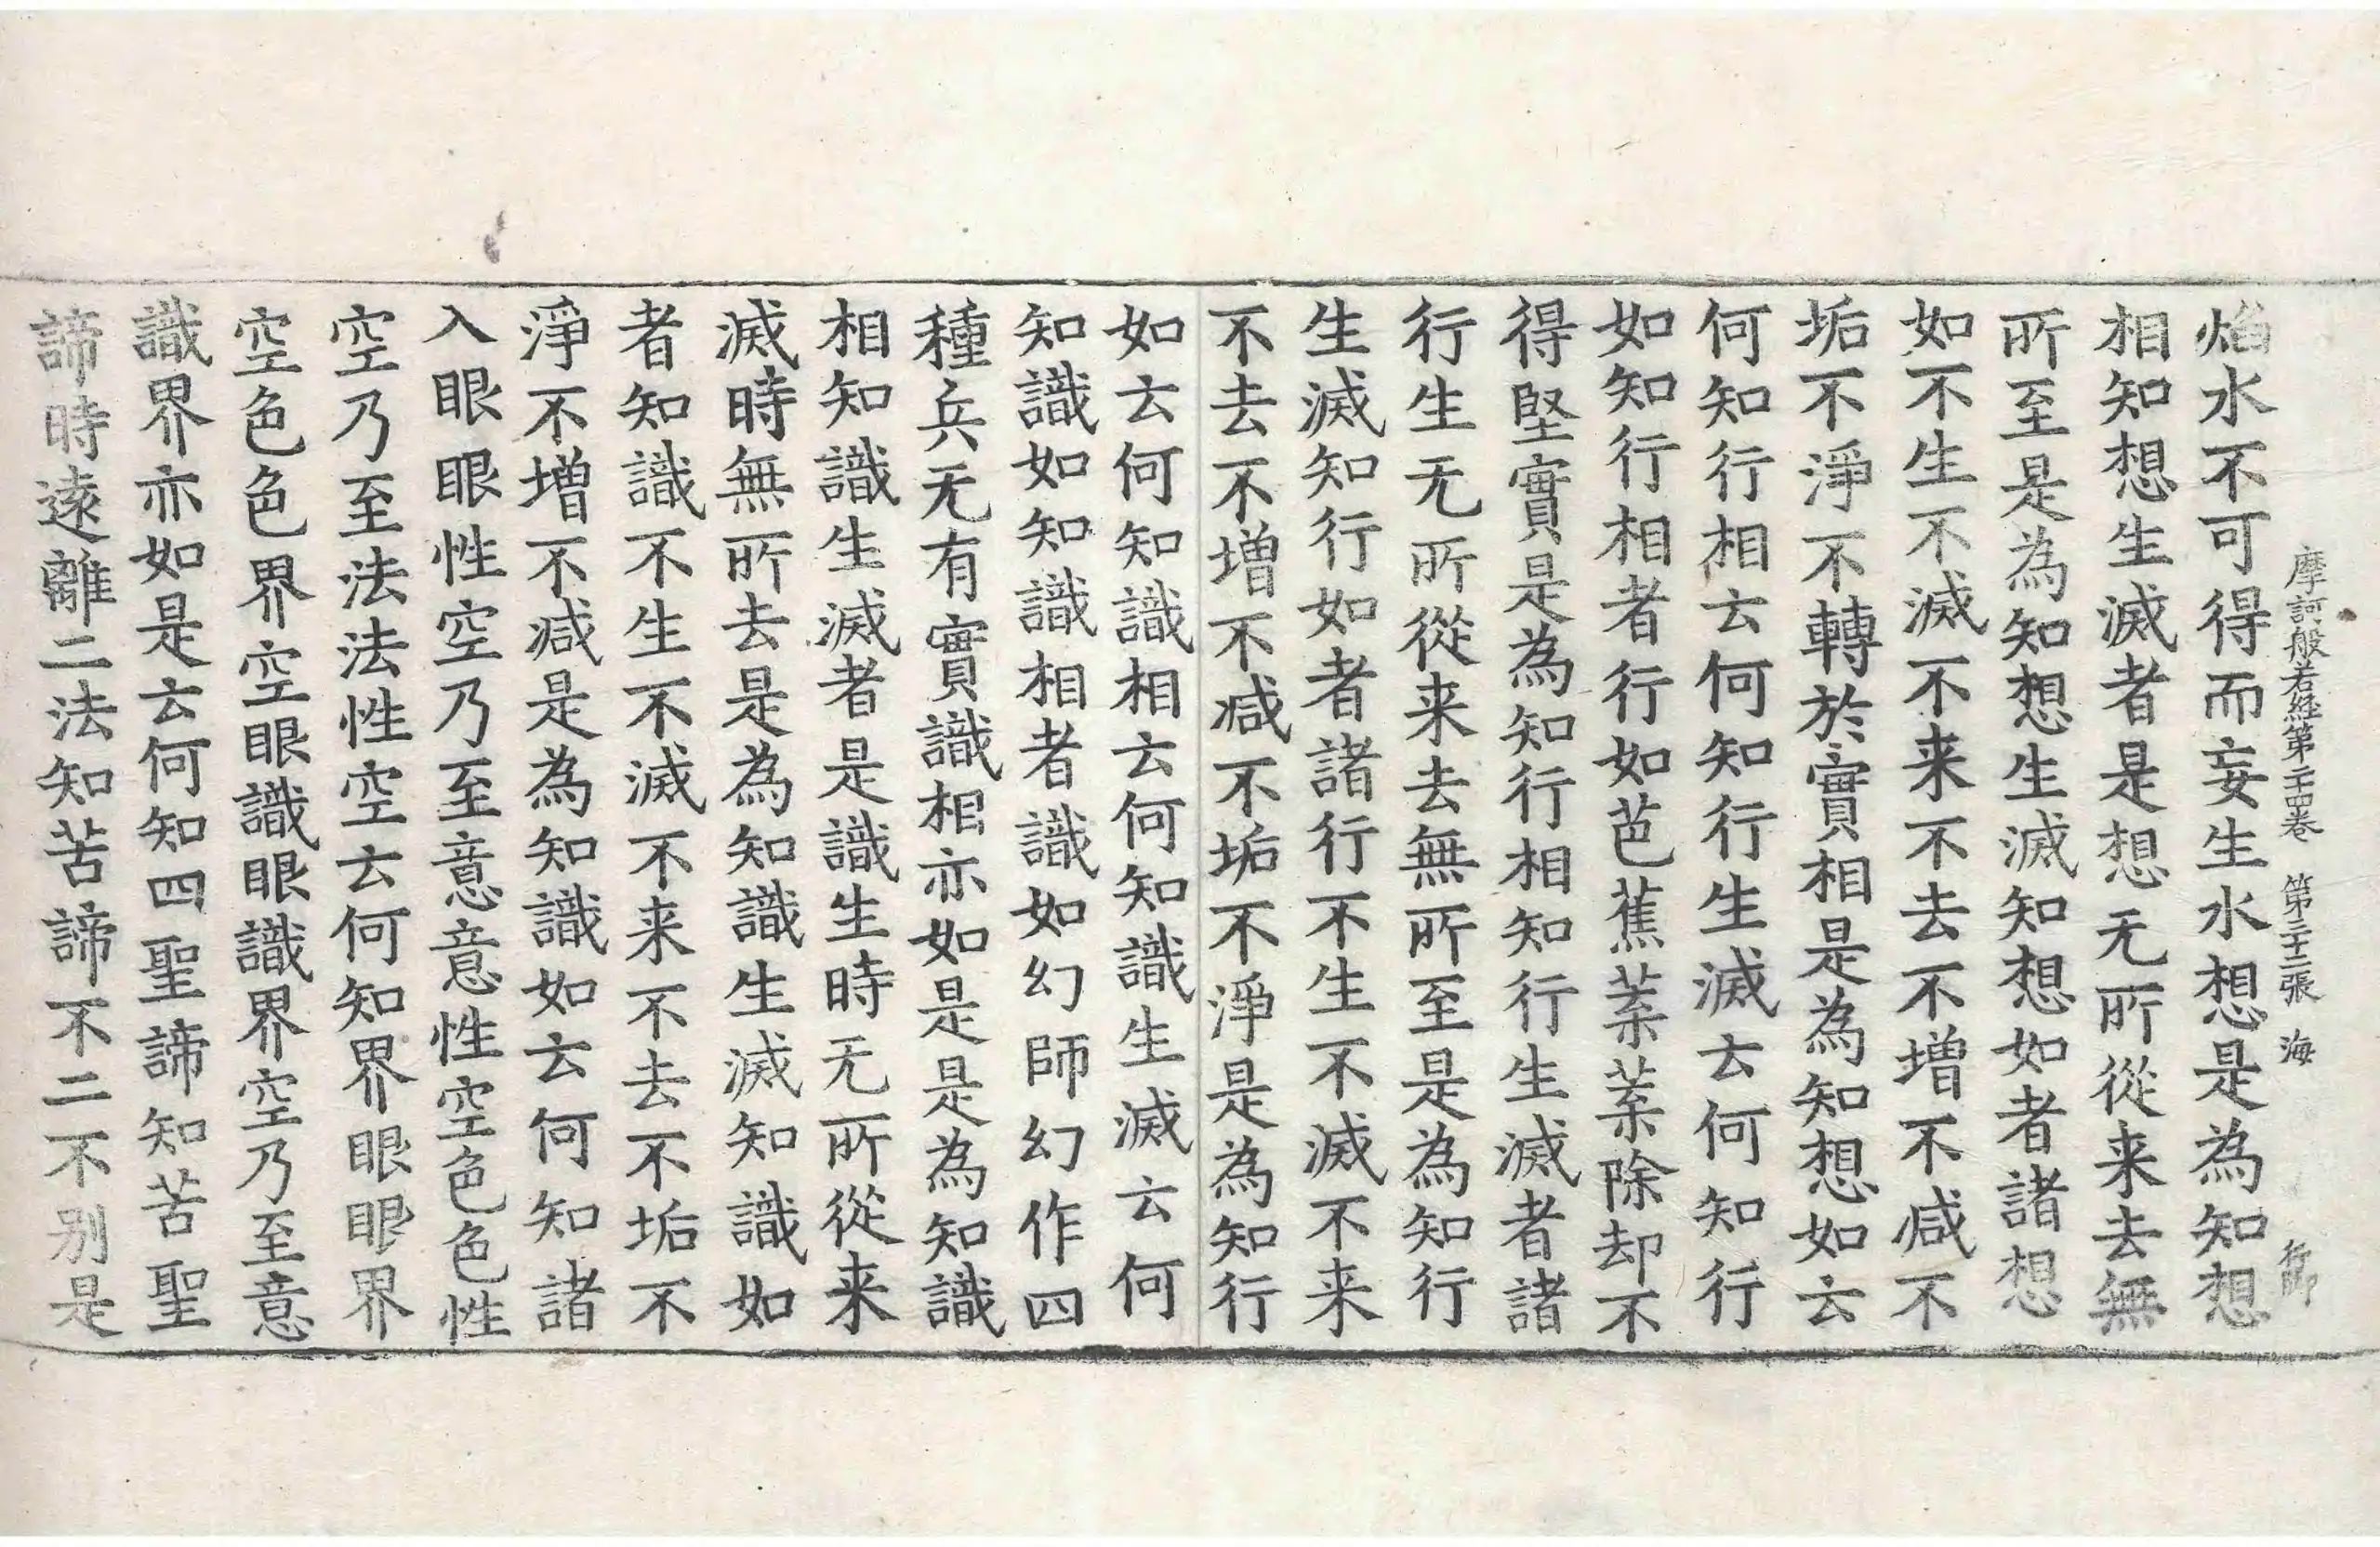 摩訶般若經第二十四卷 第二十二張 海
焰水不可得而妄生水想是為知想
相知想生滅者是想无所從来去無
所至是為知想生滅知想如者諸想
如不生不滅不来不去不增不减不
垢不淨不轉於實相是為知想如云
何知行相云何知行生滅云何知行
如知行相者行如芭蕉葉葉除却不
得堅實是為知行相知行生滅者諸
行生无所從来去無所至是為知行
生滅知行如者諸行不生不滅不来
不去不增不减不垢不淨是為知行
如云何知識相云何知識生滅云何
知識如知識相者識如幻師幻作四
種兵无有實識相亦如是是為知識
相知識生滅者是識生時无所從来
滅時無所去是為知識生滅知識如
者知識不生不滅不来不去不垢不
淨不增不减是為知識如云何知諸
入眼眼性空乃至意意性空色色性
空乃至法法性空云何知界眼眼界
空色色界空眼識眼識界空乃至意
識界亦如是云何知四聖諦知苦聖
諦時遠離二法知苦諦不二不别是